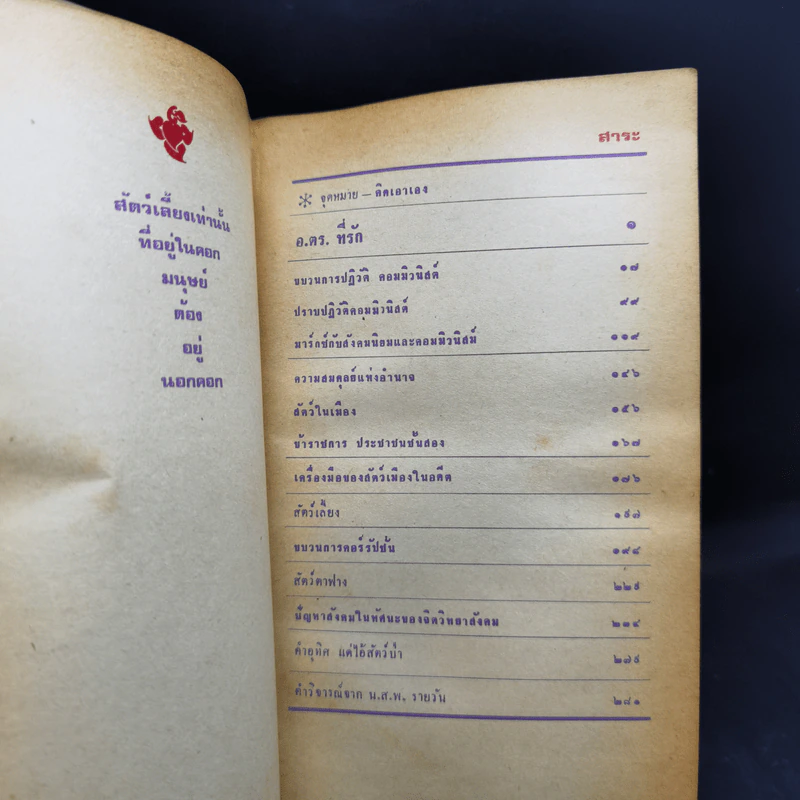 สัตว์เลี้ยงเท่านั้น
ที่อยู่ในคอก
มนุษย์
ต้อง
อยู่
นอกคอก
สาระ
จุดหมาย — คิดเอาเอง
อ.ตร. ที่รัก ๑
ขบวนการปฏิวัติ คอมมิวนิสต์ ๑๗
ปราบปฏิวัติคอมมิวนิสต์ ๙๙
มาร์กซ์กับสังคมนิยมและคอมมิวนิสม์ ๑๑๙
ความสมดุลย์แห่งอำนาจ ๑๔๖
สัตว์ในเมือง ๑๕๖
ข้าราชการ ประชาชนชั้นสอง ๑๖๗
เครื่องมือของสัตว์เมืองในอดีต ๑๗๖
สัตว์เลี้ยง ๑๘๗
ขบวนการคอร์รัปชั่น ๑๙๔
สัตว์ตาฟาง ๒๒๙
ปัญหาสังคมในทัศนะของจิตวิทยาสังคม ๒๓๔
คำอุทิศ แด่ไอ้สัตว์ป่า ๒๗๙
คำวิจารณ์จาก น.ส.พ. รายวัน ๒๘๑